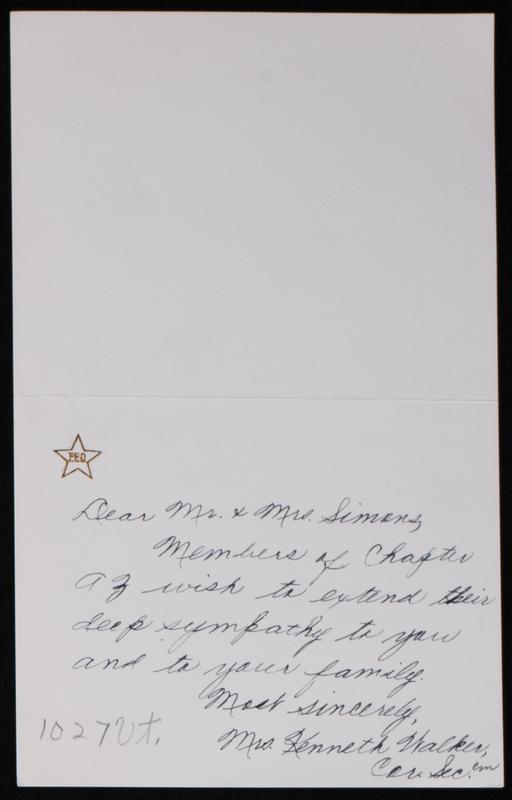 PEO
Dear Mr. & Mrs. Simons,
Members of Chapter
AZ wish to extend their
deep sympathy to you
and to your family.
Most sincerely,
Mrs. Kenneth Walker,
Cor. Sec.
1027 Vt.